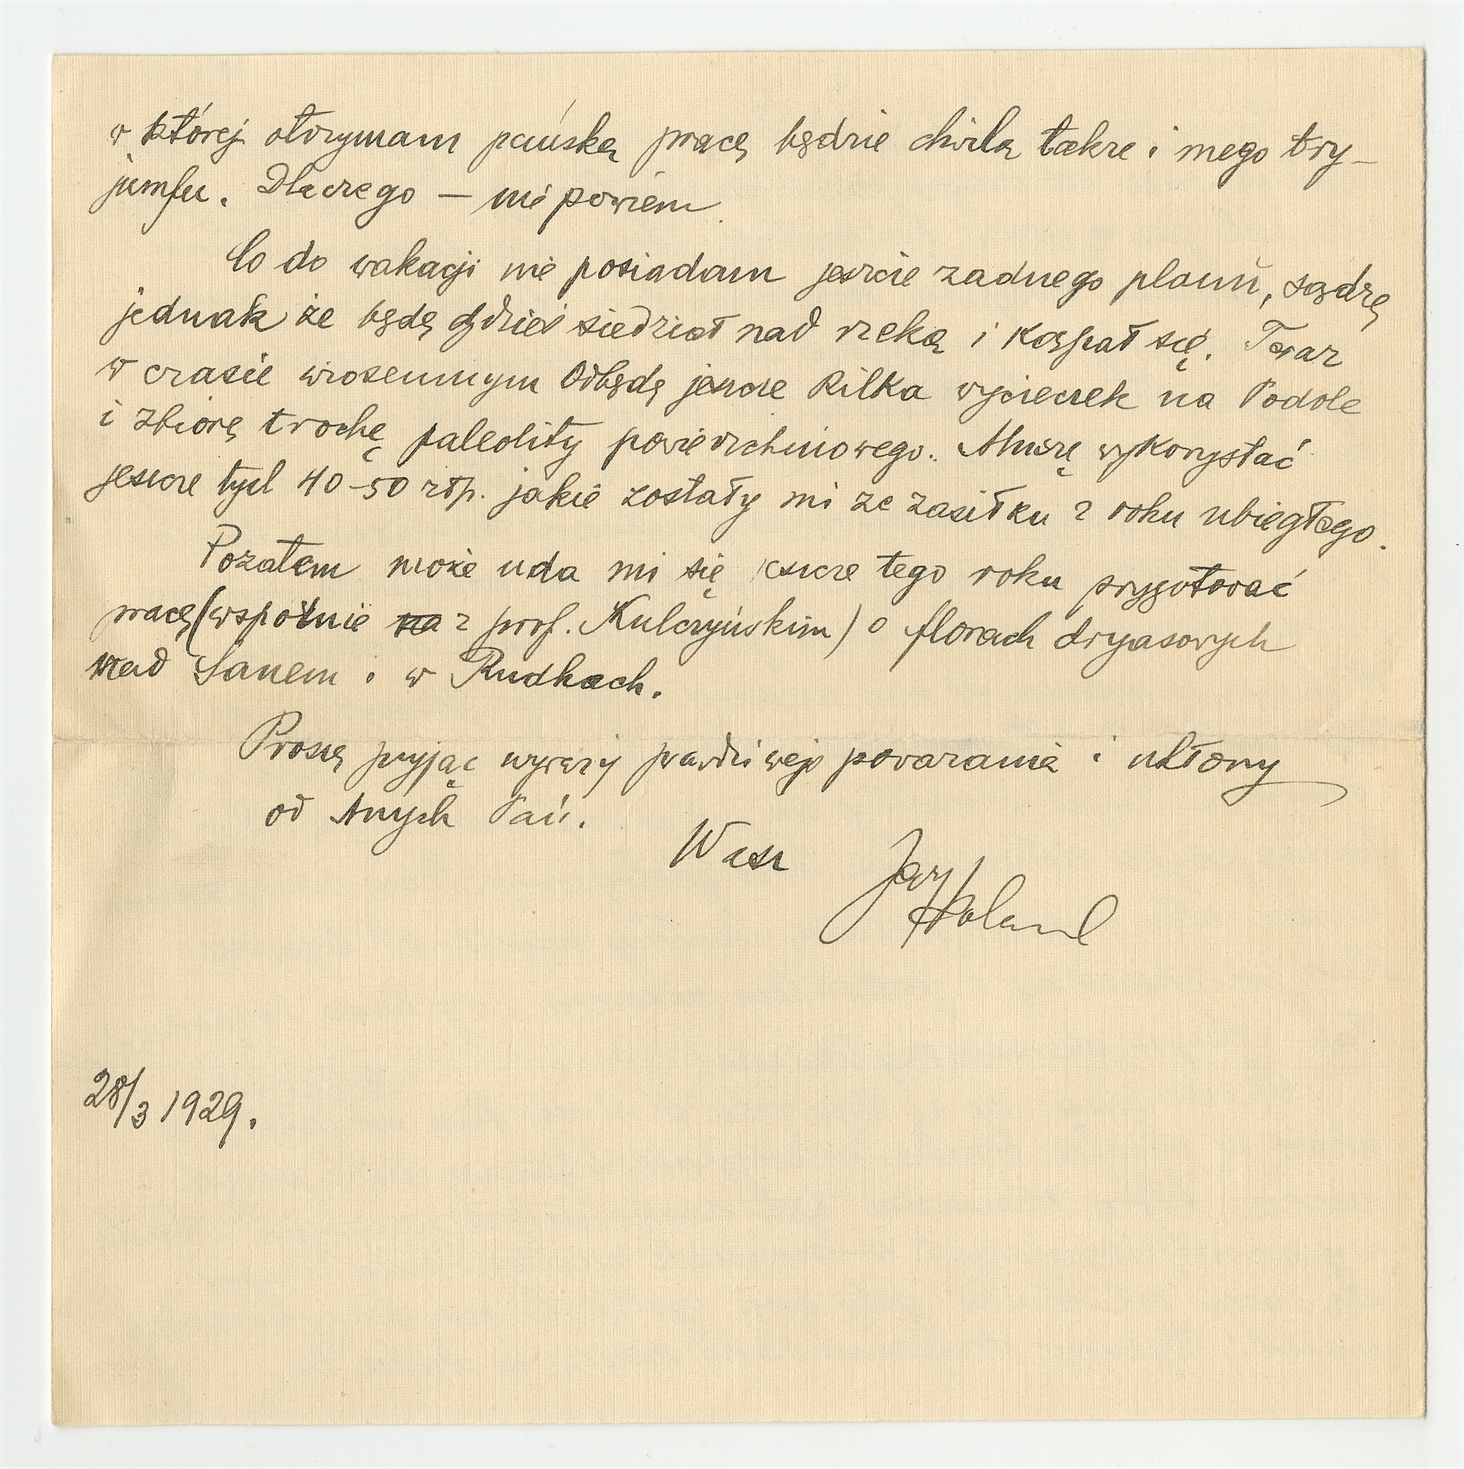 w której otrzymam pańską pracę będzie chwilą także i mego try-
jumfu. Dlaczego — nie powiem.
Co do wakacji nie posiadam jeszcze żadnego planu, sądzę
jednak że będę gdzieś siedział nad rzeką i kąpał się. Teraz
w czasie wiosennym odbędę jeszcze kilka wycieczek na Podole
i zbiorę trochę paleolitu powierzchniowego. Muszę wykorzystać
jeszcze tych 40-50 złp. jakie zostały mi ze zasiłku z roku ubiegłego.
Pozatem może uda mi się jeszcze tego roku przygotować
pracę (wspólnie na z prof. Kulczyńskim) o florach dryasowych
nad Sanem i w Rudkach.
Proszę przyjąć wyrazy prawdziwego poważania i ukłony
od Pań.
Wasz
28/3 1929.